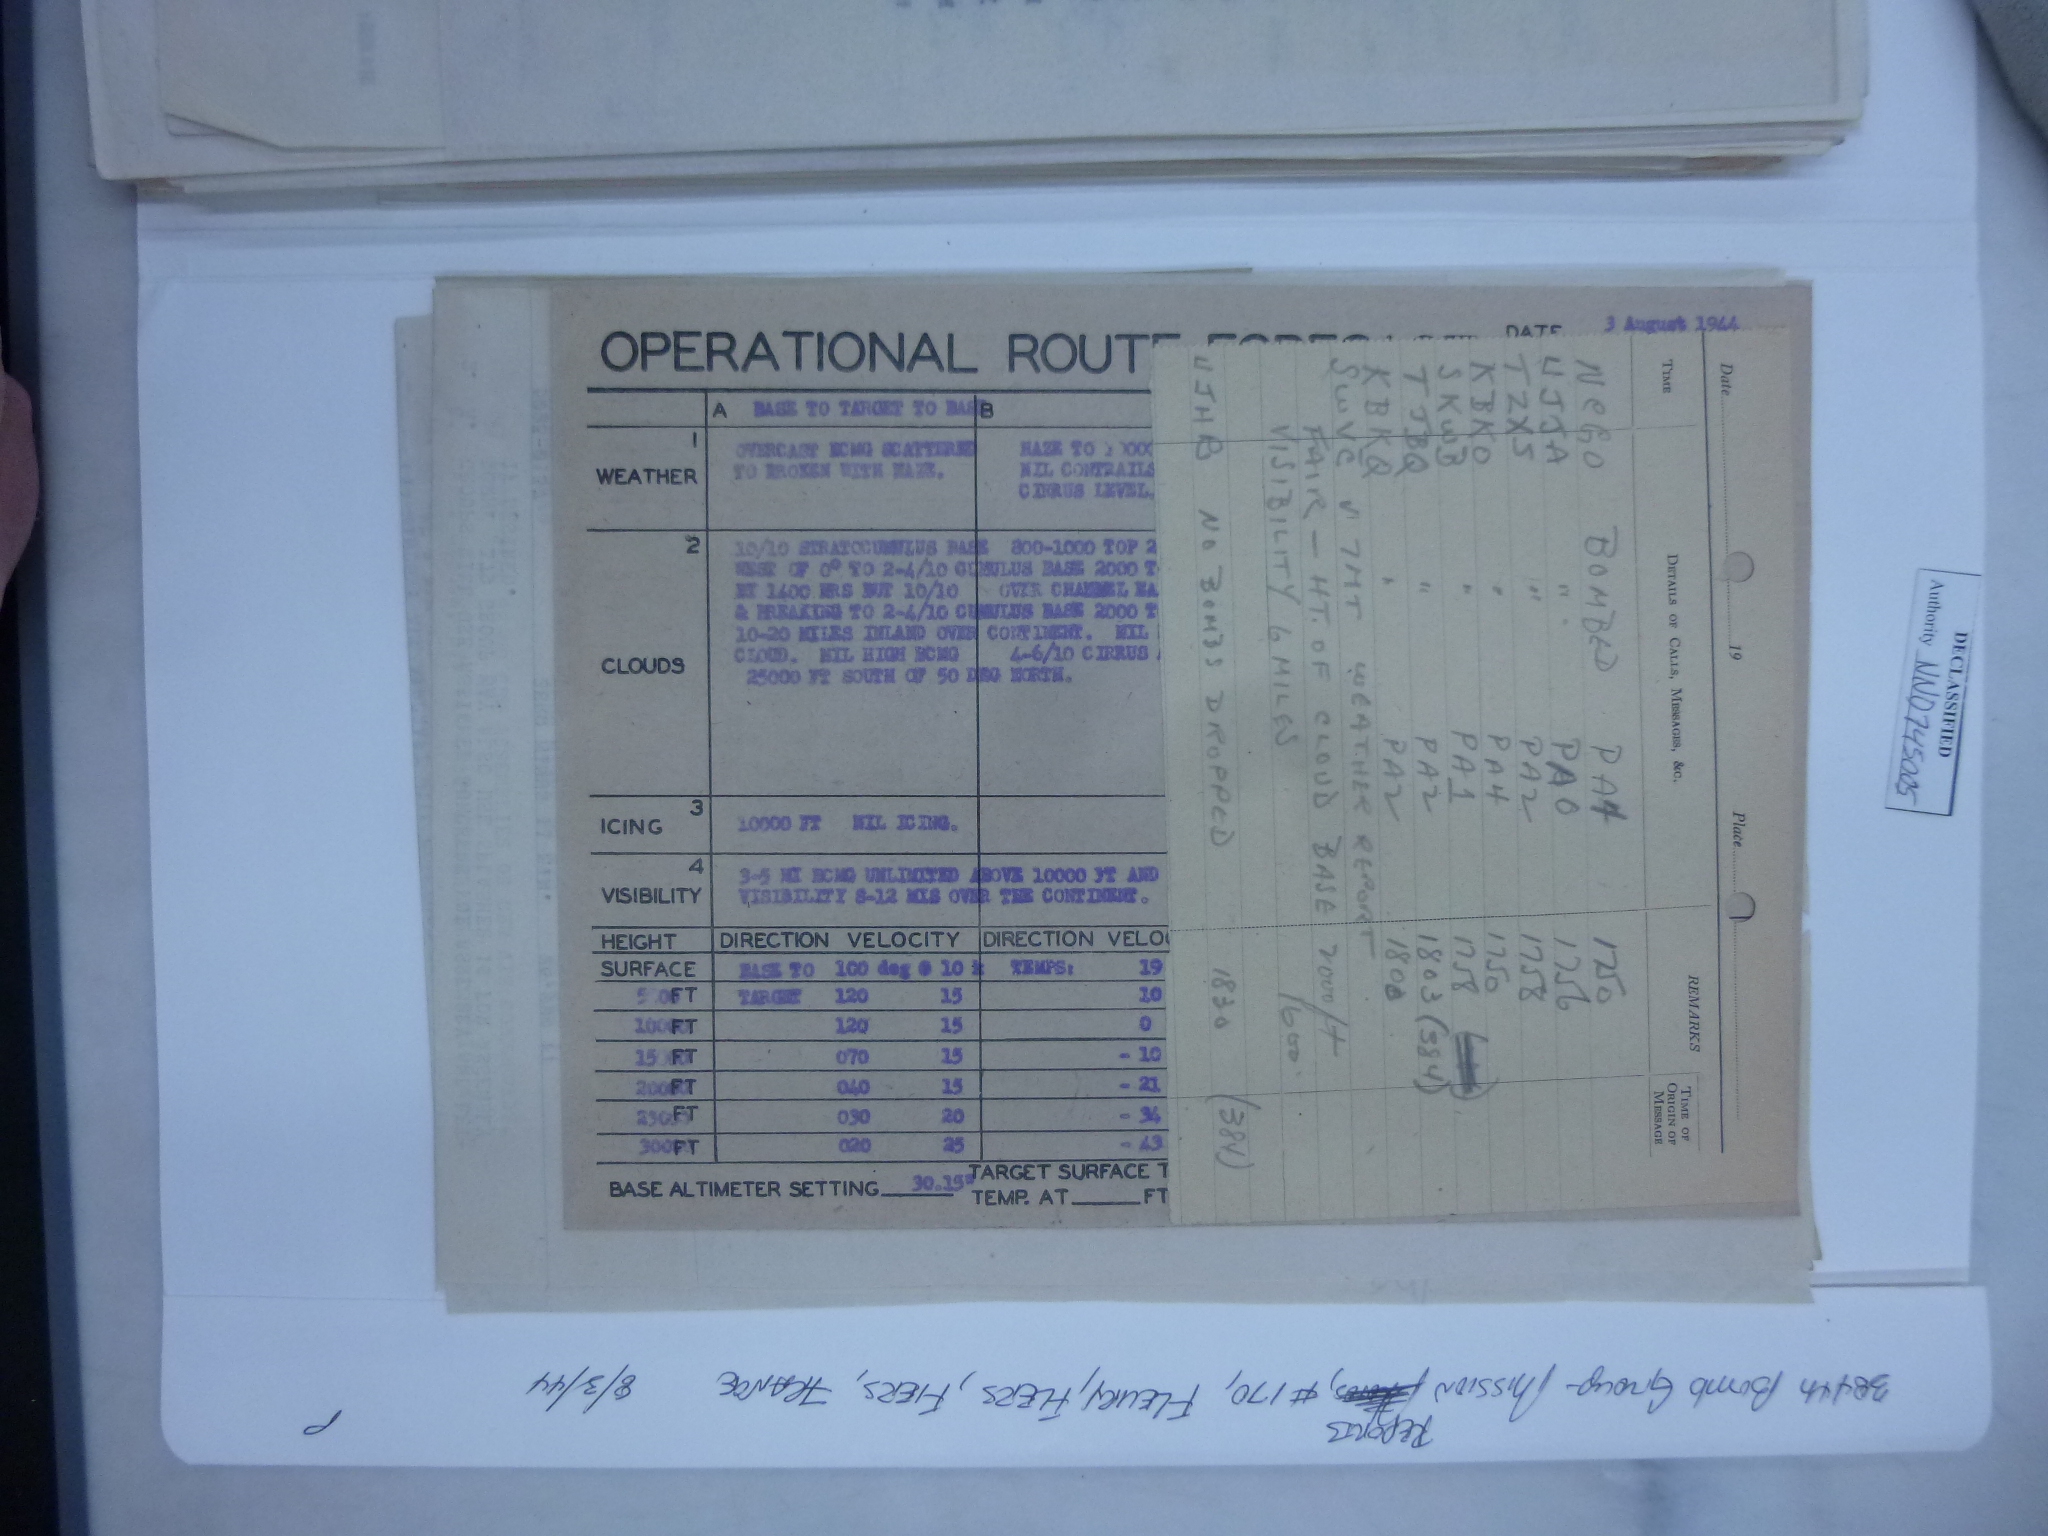 OPERATIONAL ROUTE
DATE 3 August 1944
A BASE TO TARGET TO BASE B
1
WEATHER
OVERCAST BCMG SCATTERED
TO BROKEN WITH HAZE.
HAZE TO
NIL CONTRAILS
CIRRUS LEVEL.
2
CLOUDS
10/10 STRATOCUMULUS BASE 800-1000 TOP 2
WEST OF 0° TO 2-4/10 CUMULUS BASE 2000 T
BY 1400 HRS BUT 10/10 OVER CHANNEL EA
& BREAKING TO 2-4/10 CUMULUS BASE 2000 T
10-20 MILES INLAND OVER CONTINENT. NIL
CLOUD. NIL HIGH BCMG 4-6/10 CIRRUS
25000 FT SOUTH OF 50 DEG NORTH.
3
ICING
10000 FT NIL ICING.
4
VISIBILITY
3-5 MI BCMG UNLIMITED ABOVE 10000 FT AND
VISIBILITY 8-12 MIS OVER THE CONTINENT.
HEIGHT DIRECTION VELOCITY DIRECTION VELO
SURFACE BASE TO 100 deg @ 10 k TEMPS: 19
FT TARGET 120 15 10
FT 120 15 0
FT 070 15 - 10
FT 040 15 - 21
FT 030 20 - 34
FT 020 25 - 43
BASE ALTIMETER SETTING 30.15" TARGET SURFACE T
TEMP. AT FT
Date 19 Place
TIME DETAILS OF CALLS, MESSAGES, &C. REMARKS TIME OF ORIGIN OF MESSAGE
BOMBED 1750
UJJA " PA0 1756
TZX5 " PA2 1758
KBKO " PA4 1750
SKWB " PA1 1758
TJBQ " PA2 1803 (384)
KBKQ " PA2 1800
SWVC V 7MT WEATHER REPORT
FAIR — HT. OF CLOUD BASE 2000 ft
VISIBILITY 6 MILES 1600.
UJHB NO BOMBS DROPPED 1830 (384)
DECLASSIFIED
Authority NND745005
384th Bomb Group - Mission Reports, #170, Fleury, Flers, Fiers, France 8/3/44
P